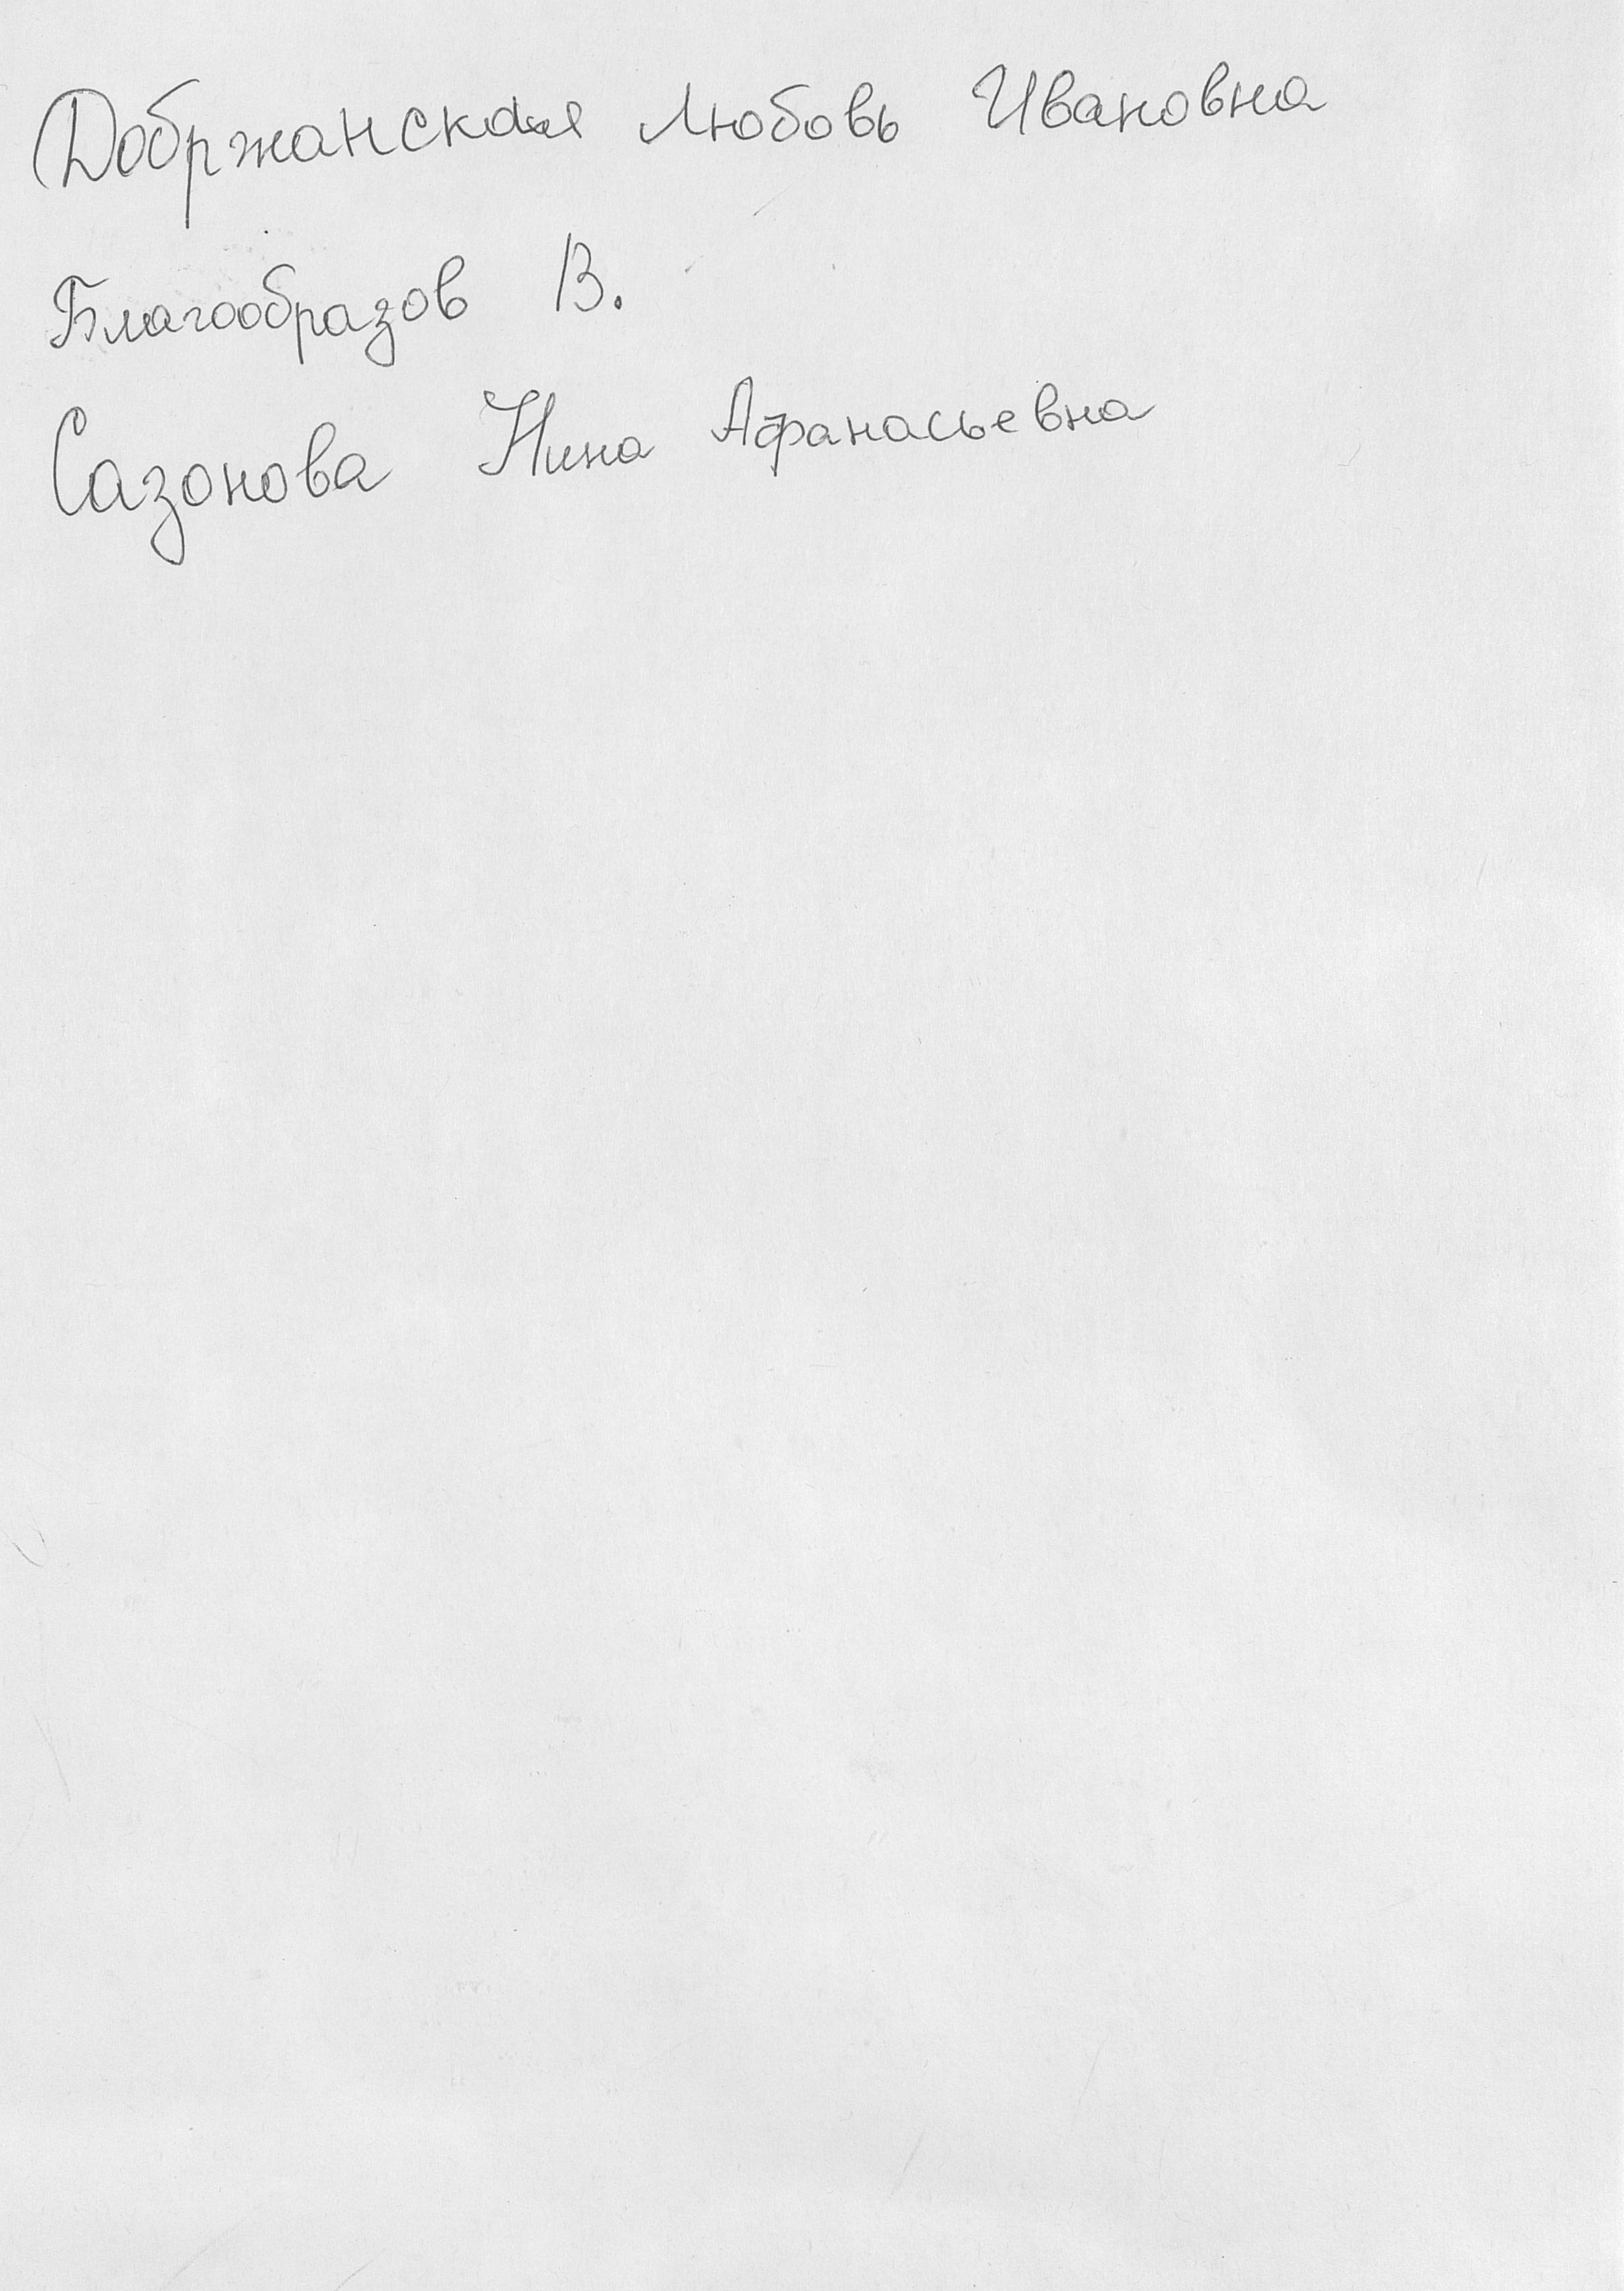 Добржанская Любовь Ивановна
Благообразов В.
Сазонова Нина Афанасьевна